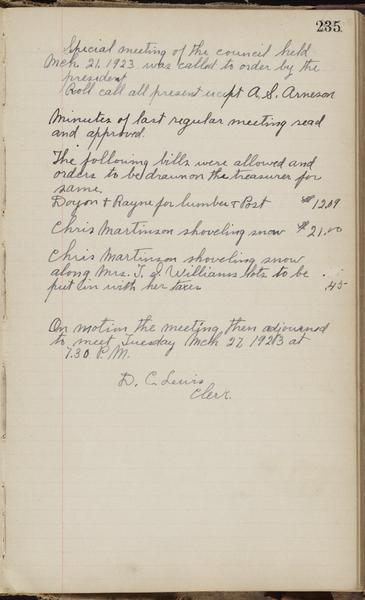 235
Special meeting of the council held
Mch. 21. 1923 was called to order by the
president
Roll call all present except A. S. Arneson
Minutes of last regular meeting read
and approved.
The following bills were allowed and
orders to be drawn on the treasurer for
same.
Doyon & Rayne for lumber & Post $12.09
Chris Martinson shoveling snow $21.00
Chris Martinson shoveling snow
along Mrs. T. J. Williams lots to be
put in with her taxes .45
On motion the meeting then adjourned
to meet Tuesday Mch 27, 1923 at
7.30 P.M.
D. C. Lewis
Clerk.